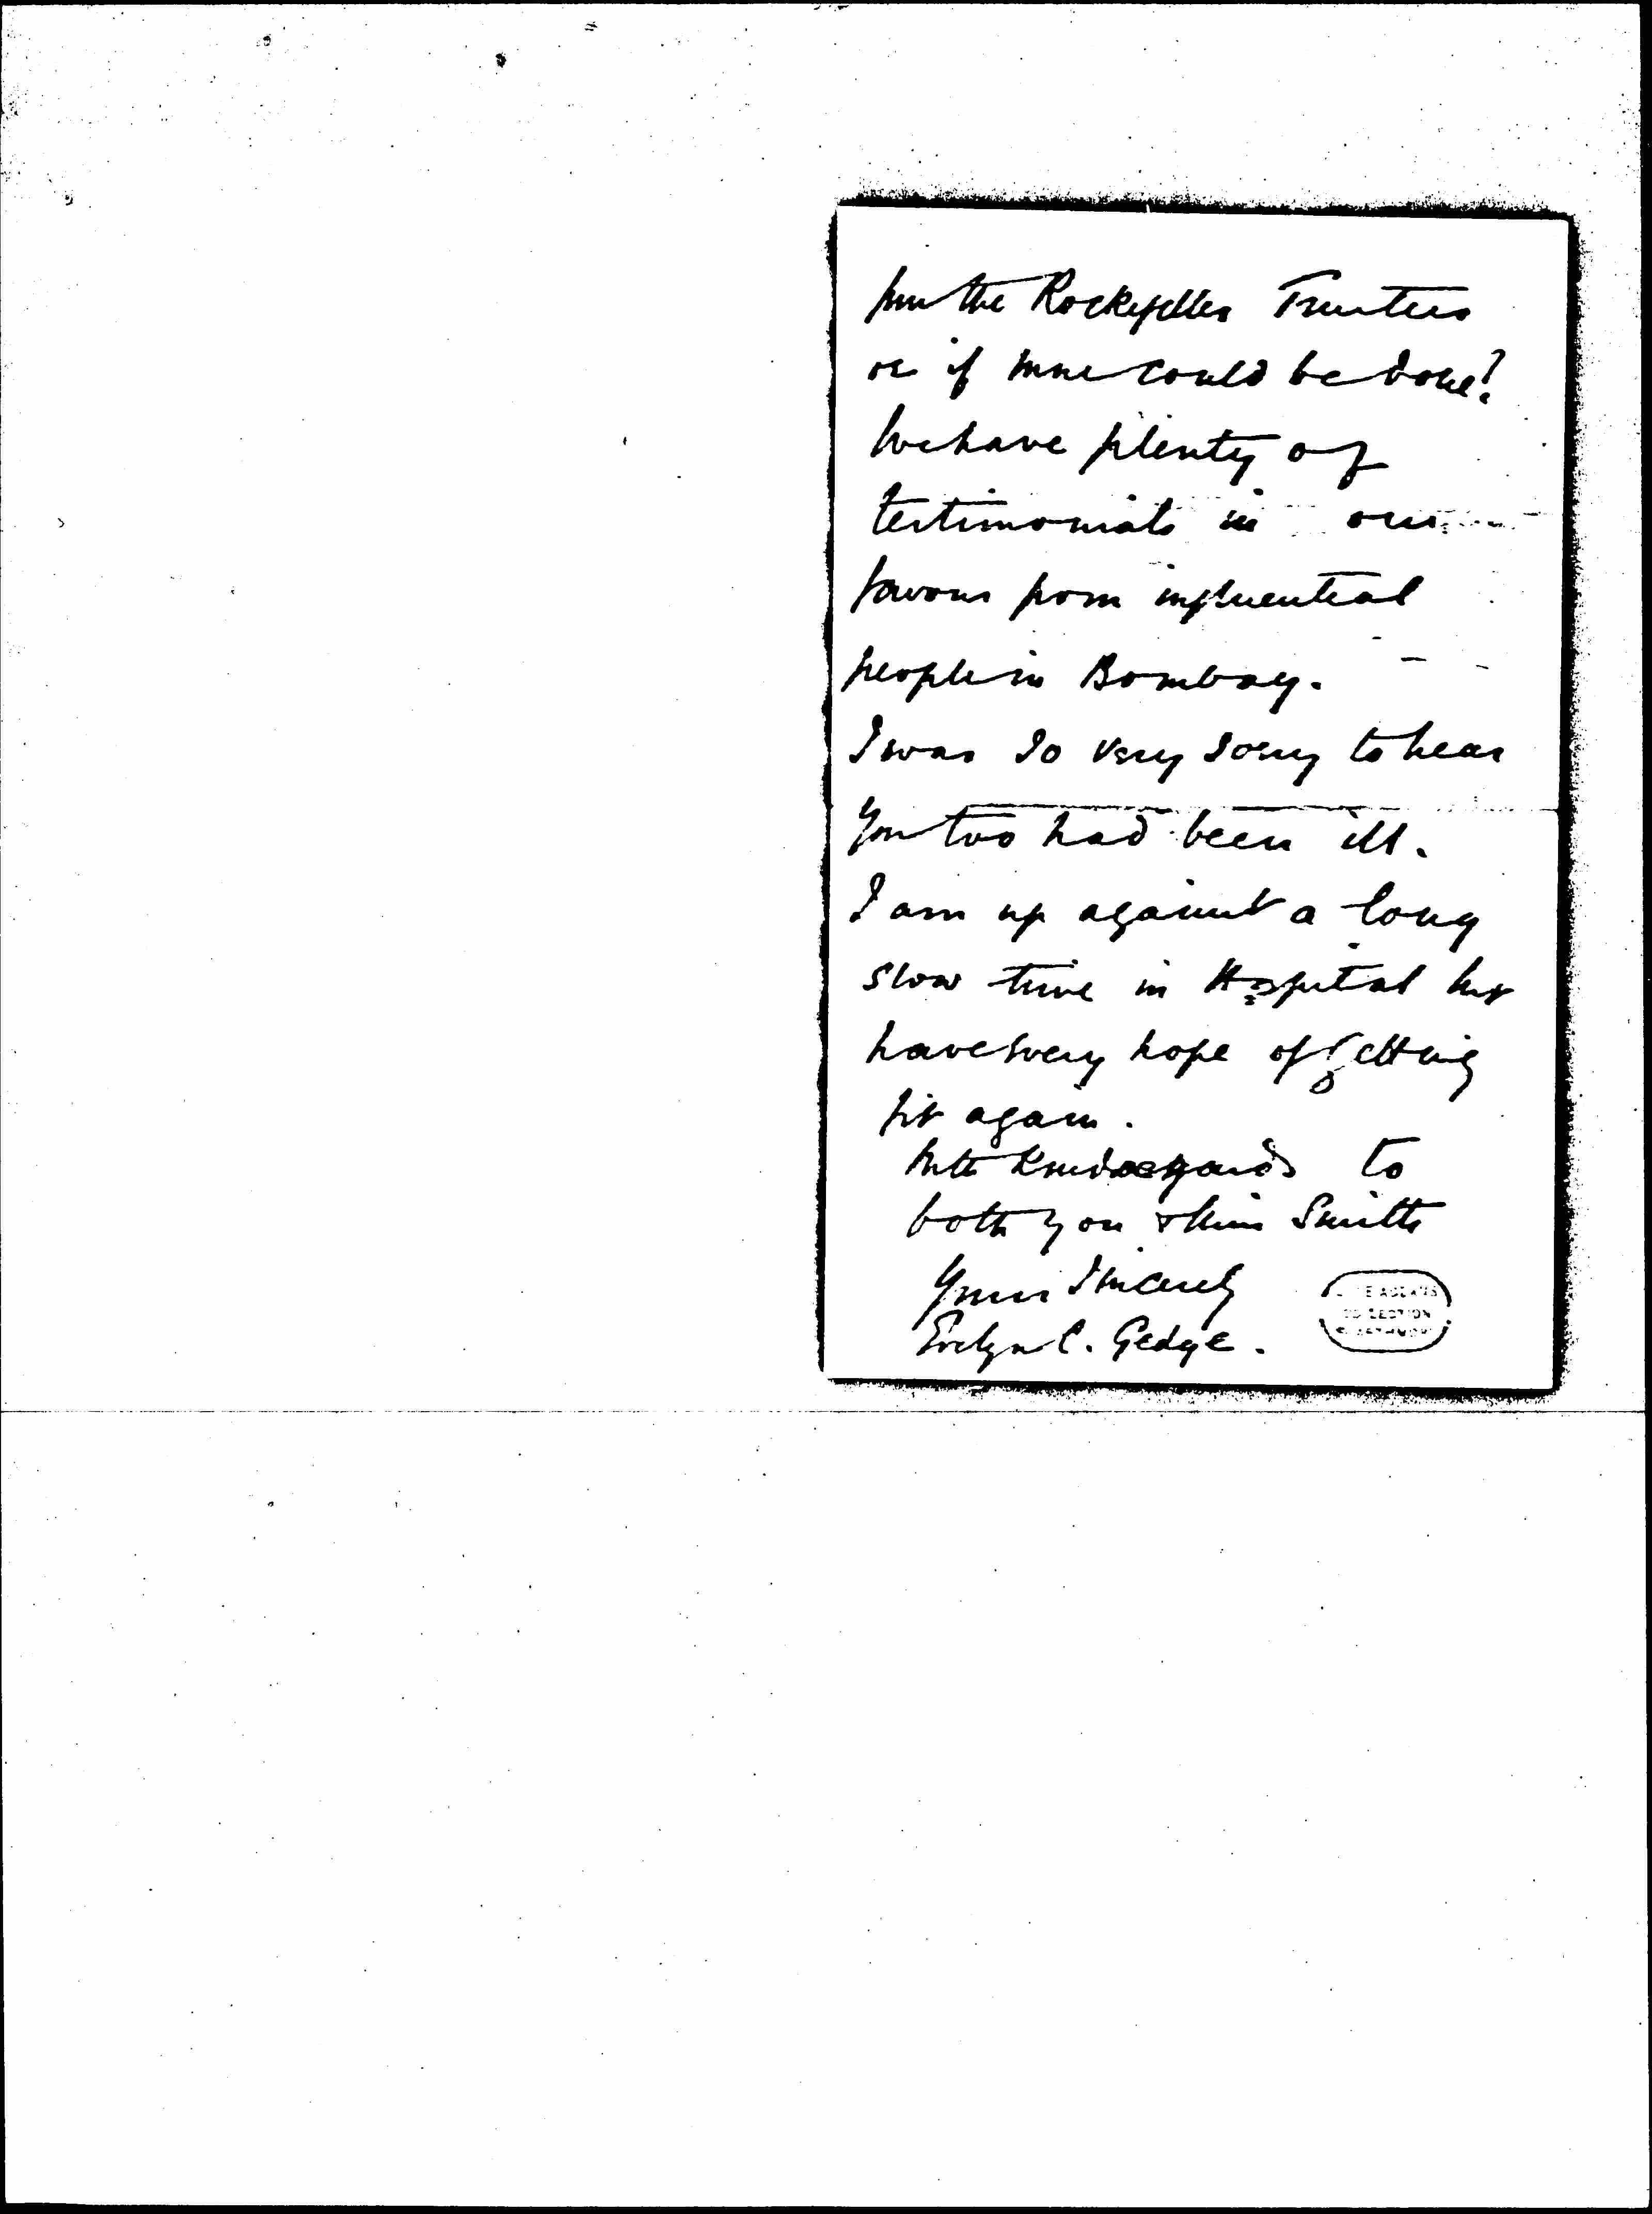 from the Rockefeller Trustees
or if more could be done?
We have plenty of
testimonials in our
favour from influential
people in Bombay.
I was so very sorry to hear
you too had been ill.
I am up against a long
slow time in Hospital but
have every hope of getting
fit again.
With kind regards to
both you & Miss Smith
Yours sincerely
Evelyn C. Gedge.
COLLECTION